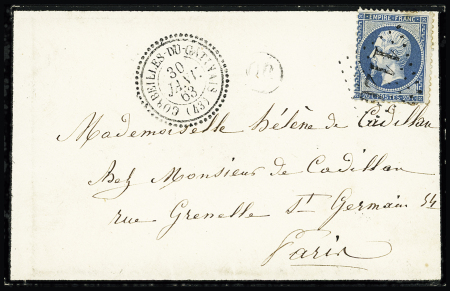 CORBEILLES-DU-GATINAIS (43)
30
JANV.
63
OR
EMPIRE FRANC
20 c POSTES 20 c
Mademoiselle Hélène de Cadillan
Chez Monsieur de Cadillan
rue Grenelle St Germain 34
Paris